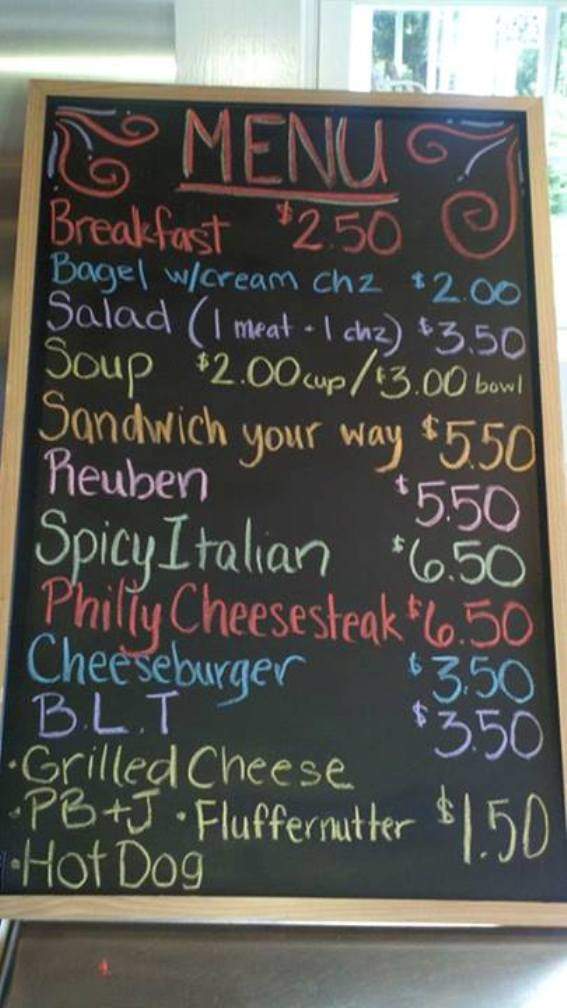 MENU
Breakfast $2.50
Bagel w/cream chz $2.00
Salad (1 meat - 1 chz) $3.50
Soup $2.00 cup/$3.00 bowl
Sandwich your way $5.50
Reuben $5.50
Spicy Italian $6.50
Philly Cheesesteak $6.50
Cheeseburger $3.50
B.L.T $3.50
·Grilled Cheese
·PB+J ·Fluffernutter $1.50
·Hot Dog